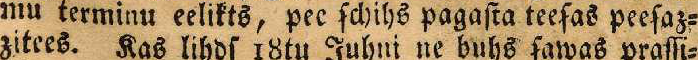 mu terminu eelikts, pec ſchihs pagaſta teeſas peeſaz⸗
zitees. Kas lihdſ 18tu Juhni ne buhs ſawas praſſi⸗